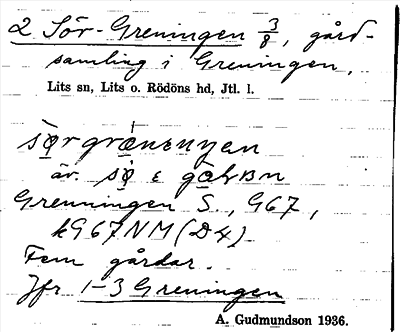 2 Sör-Greningen 3/8, gård-
samling i Greningen,
Lits sn, Lits o. Rödöns hd, Jtl. l.
äv.
Greningen S., G67,
kG67NM(D4)
Fem gårdar.
Jfr 1-3 Greningen
A. Gudmundson 1936.